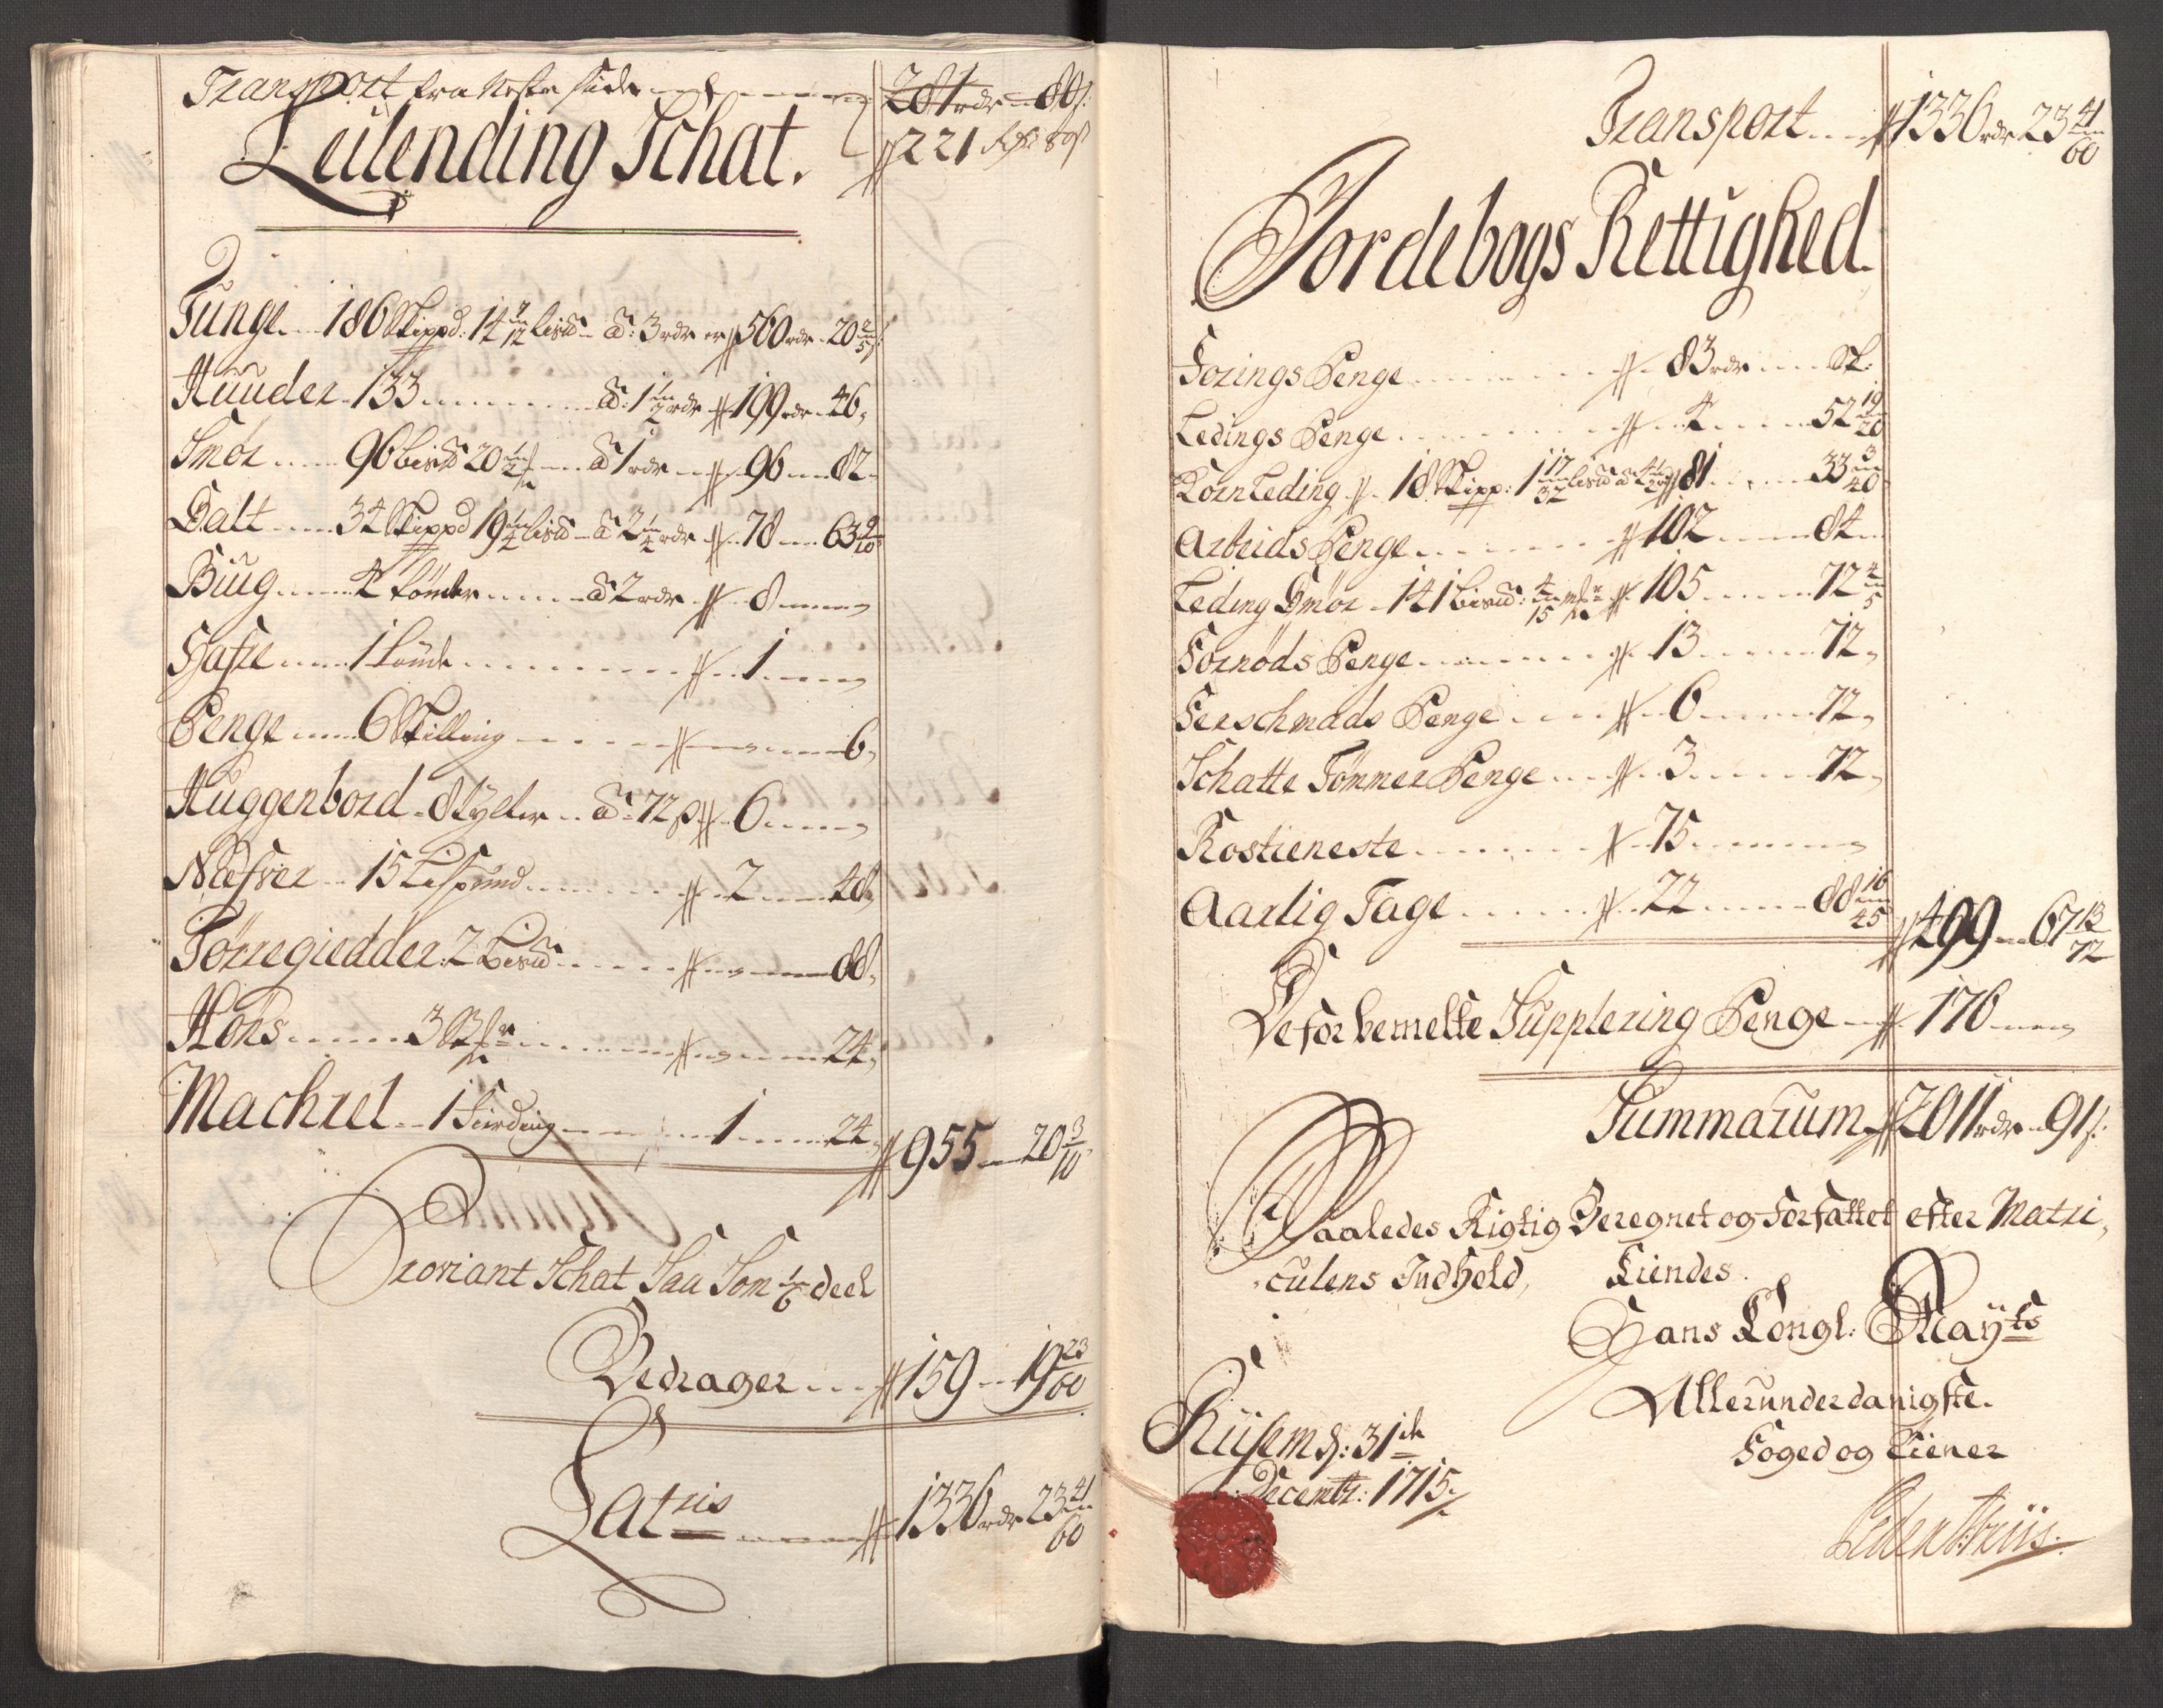 Transport fra neste side 281 rdr 88 s:
221 rdr 89 s
Leilending Schat.
Tunge 186 Skippd: 14 7/12 lispd à: 3 rdr er # 560 rdr 20 2/5 s:
Huuder 133 à: 1 1/2 rdr # 199 rdr 46,
Smör 96 bispd 20 1/2 à 1 rdr # 96 82
Salt 34 Skippd 19 1/4 lispd à 2 1/4 rdr # 78 63 9/10
Biug 4 tönder à 2 rdr # 8
Hafre 1 tönde # 1
Penge 6 Skilling # 6,
Huggenbord 8 tylter à 72 s # 6
Næfver 15 Lispund # 2 48,
Törregiedder 2 Bispd # 88,
Höns 3 # 24,
Machrel 1 Fierding 1 24
# 955 20 3/10
Proviant Schat Saa Som 1/6 deel
Bedrager # 159 19 23/60
Latris # 1336 rdr 23 41/60
Transport # 1336 rdr 23 41/60
Jordebogs Rettighed
Forings Penge # 83 rdr sk:
Ledings Penge # 4 52 19/20
Korn Leding # 18 Skipp: 1 17/32 lispd à 4 1/2 rdr # 81 33 3/40
Arbeids Penge # 102 84
Leding Smör 141 bispd: 4/15 # 105 72 4/5
Fornöds Penge # 13 72,
Ferschmads Penge # 6 72,
Schatte Tömmer Penge # 3 72,
Rostieneste # 75
Aarlig Tage # 22 88 16/45
# 499 67 13/72
De for bemelte Supplering Penge # 176
Summarum # 2011 rdr 91 s:
Saaledes Rigtig Beregnet og Forfattet efter Matri,
culens Indhold, Tiendes.
Hans Kongl: Mayts
Allerunderdanigste.
Foged og Tiener
d: 31te
Decembr: 1715.
Peder Friis.